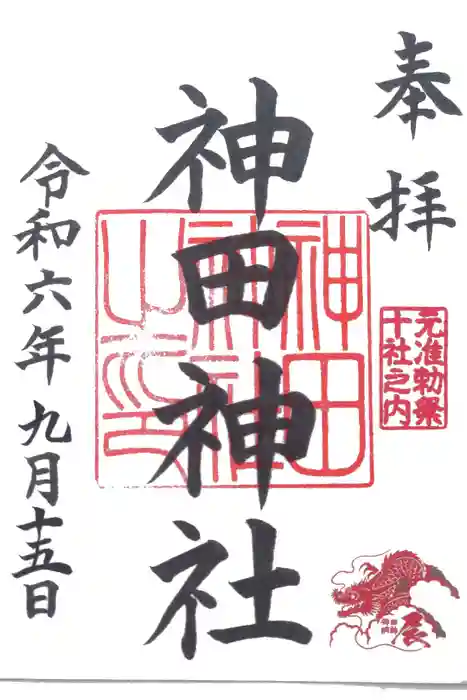 奉拝
元准勅祭
十社之内
神田神社
神田
神社
之印
令和六年九月十五日
辰